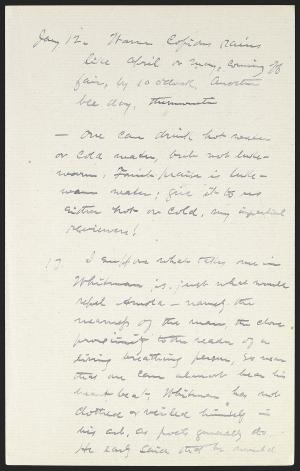 Jany 12. Warm Copious rains
like April or May, coming off
fair, by 10 oclock. Another
bee day, thermometer
— One can drink hot water
or cold water, but not luke-
warm. Faint praise is luke-
warm water; give it to us
either hot or cold, my impartial
reviewers!
I suppose what takes one in
Whitman is just what would
repel Arnold — namely the
nearness of the man, the close
proximity to the reader of a
living breathing person, so near
that one can almost hear his
heart beat, Whitman has not
clothed or veiled himself in
his art, as poets generally do.
He early said that he would